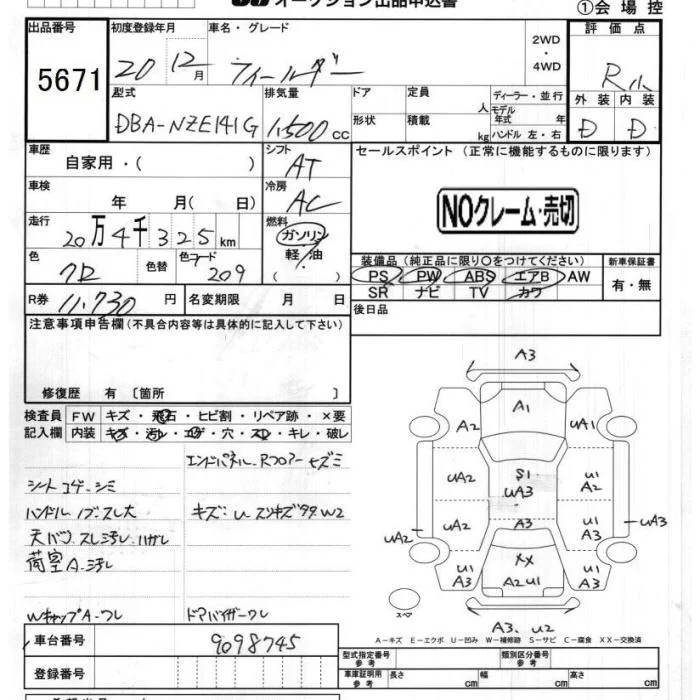 オークション出品申込書
①会場控
出品番号
5671
初度登録年月
20 12月
車名・グレード
フィールダー
2WD
・
4WD
評価点
R小
外装 内装
D D
型式
DBA-NZE141G
排気量
1,500 cc
ドア
形状
定員
人
積載
kg
ディーラー・並行
モデル年式 年
ハンドル 左・右
車歴
自家用・( )
シフト
AT
セールスポイント (正常に機能するものに限ります)
車検
年 月( 日)
冷房
AC
NOクレーム・売切
走行
20万4千325km
燃料
ガソリン
軽・油
( )
色
クロ
色替
色コード
209
装備品 (純正品に限り○をつけてください)
PS PW ABS エアB AW
SR ナビ TV カワ
新車保証書
有・無
R券
11,730円
名変期限 月 日
後日品
注意事項申告欄(不具合内容等は具体的に記入して下さい)
修復歴 有〔箇所 〕
検査員記入欄
FW キズ・飛石・ヒビ割・リペア跡・×要
内装 キズ・汚れ・コゲ・穴・スレ・キレ・破レ
エンドパネル、Rフロアーヒズミ
シートコゲ・シミ
ハンドル ノブ・スレ大
キズ・U スリキズ多々W2
天バリ スレ汚レ・ハガレ
荷室A・汚レ
WキャップA・ワレ
ドアバイザーワレ
A3
A1
A2
UA1
UA2
S1
UA3
U1
A2
UA2
UA2
A3
U1
A3
UA3
U1
A3
XX
A2U1
U1
A3
スペア
A3、U2
A-キズ E-エクボ U-凹み W-補修跡 S-サビ C-腐食 XX-交換済
車台番号
9098745
登録番号
型式指定番号
参考
類別区分番号
参考
車庫証明用
参考
長さ cm
幅 cm
高さ cm